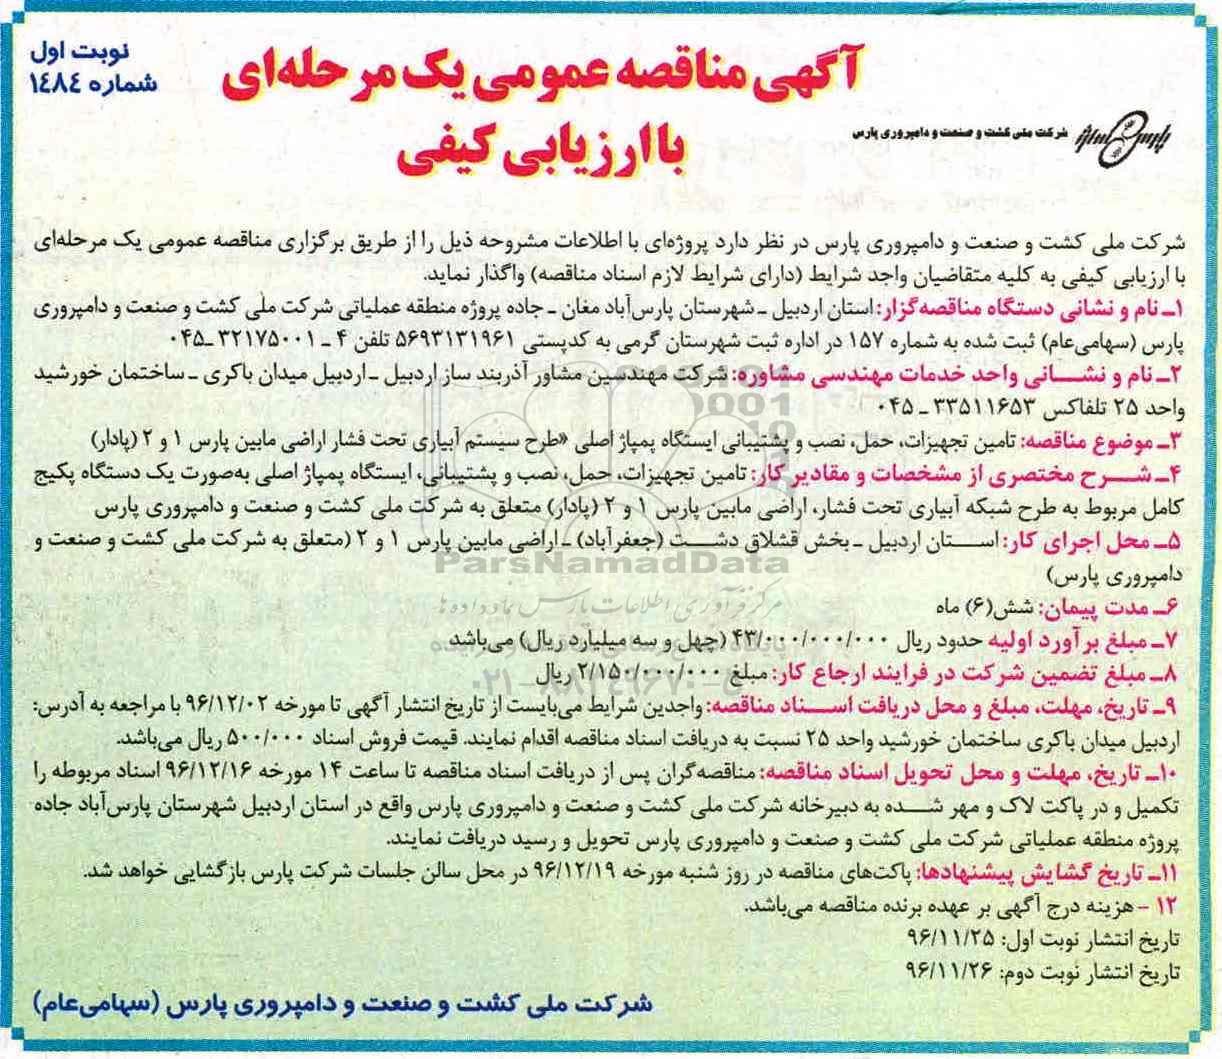 نوبت اول
شماره ۱۴۸۴
آگهی مناقصه عمومی یک مرحله‌ای
با ارزیابی کیفی
شرکت ملی کشت و صنعت و دامپروری پارس
شرکت ملی کشت و صنعت و دامپروری پارس در نظر دارد پروژه‌ای با اطلاعات مشروحه ذیل را از طریق برگزاری مناقصه عمومی یک مرحله‌ای
با ارزیابی کیفی به کلیه متقاضیان واجد شرایط (دارای شرایط لازم اسناد مناقصه) واگذار نماید.
۱ـ نام و نشانی دستگاه مناقصه‌گزار: استان اردبیل ـ شهرستان پارس‌آباد مغان ـ جاده پروژه منطقه عملیاتی شرکت ملی کشت و صنعت و دامپروری
پارس (سهامی‌عام) ثبت شده به شماره ۱۵۷ در اداره ثبت شهرستان گرمی به کدپستی ۵۶۹۳۱۳۱۹۶۱ تلفن ۴ ـ ۳۲۱۷۵۰۰۱ ـ۰۴۵
۲ـ نام و نشـــانی واحد خدمات مهندسی مشاوره: شرکت مهندسین مشاور آذربند ساز اردبیل ـ اردبیل میدان باکری ـ ساختمان خورشید
واحد ۲۵ تلفاکس ۳۳۵۱۱۶۵۳ ـ ۰۴۵
۳ـ موضوع مناقصه: تامین تجهیزات، حمل، نصب و پشتیبانی ایستگاه پمپاژ اصلی «طرح سیستم آبیاری تحت فشار اراضی مابین پارس ۱ و ۲ (پادار)
۴ـ شـــرح مختصری از مشخصات و مقادیر کار: تامین تجهیزات، حمل، نصب و پشتیبانی، ایستگاه پمپاژ اصلی به‌صورت یک دستگاه پکیج
کامل مربوط به طرح شبکه آبیاری تحت فشار، اراضی مابین پارس ۱ و ۲ (پادار) متعلق به شرکت ملی کشت و صنعت و دامپروری پارس
۵ـ محل اجرای کار: اســـتان اردبیل ـ بخش قشلاق دشـــت (جعفرآباد) ـ اراضی مابین پارس ۱ و ۲ (متعلق به شرکت ملی کشت و صنعت و
دامپروری پارس)
ParsNamadData
مرکز فرآوری اطلاعات پارس نماد داده‌ها
۶ـ مدت پیمان: شش(۶) ماه
۷ـ مبلغ برآورد اولیه حدود ریال ۴۳/۰۰۰/۰۰۰/۰۰۰ (چهل و سه میلیارد ریال) می‌باشد
۸ـ مبلغ تضمین شرکت در فرایند ارجاع کار: مبلغ ۲/۱۵۰/۰۰۰/۰۰۰ ریال
۹ـ تاریخ، مهلت، مبلغ و محل دریافت اســـناد مناقصه: واجدین شرایط می‌بایست از تاریخ انتشار آگهی تا مورخه ۹۶/۱۲/۰۲ با مراجعه به آدرس:
اردبیل میدان باکری ساختمان خورشید واحد ۲۵ نسبت به دریافت اسناد مناقصه اقدام نمایند. قیمت فروش اسناد ۵۰۰/۰۰۰ ریال می‌باشد.
۱۰ـ تاریخ، مهلت و محل تحویل اسناد مناقصه: مناقصه‌گران پس از دریافت اسناد مناقصه تا ساعت ۱۴ مورخه ۹۶/۱۲/۱۶ اسناد مربوطه را
تکمیل و در پاکت لاک و مهر شـــده به دبیرخانه شرکت ملی کشت و صنعت و دامپروری پارس واقع در استان اردبیل شهرستان پارس‌آباد جاده
پروژه منطقه عملیاتی شرکت ملی کشت و صنعت و دامپروری پارس تحویل و رسید دریافت نمایند.
۱۱ـ تاریخ گشایش پیشنهادها: پاکت‌های مناقصه در روز شنبه مورخه ۹۶/۱۲/۱۹ در محل سالن جلسات شرکت پارس بازگشایی خواهد شد.
۱۲ - هزینه درج آگهی بر عهده برنده مناقصه می‌باشد.
تاریخ انتشار نوبت اول: ۹۶/۱۱/۲۵
تاریخ انتشار نوبت دوم: ۹۶/۱۱/۲۶
شرکت ملی کشت و صنعت و دامپروری پارس (سهامی‌عام)